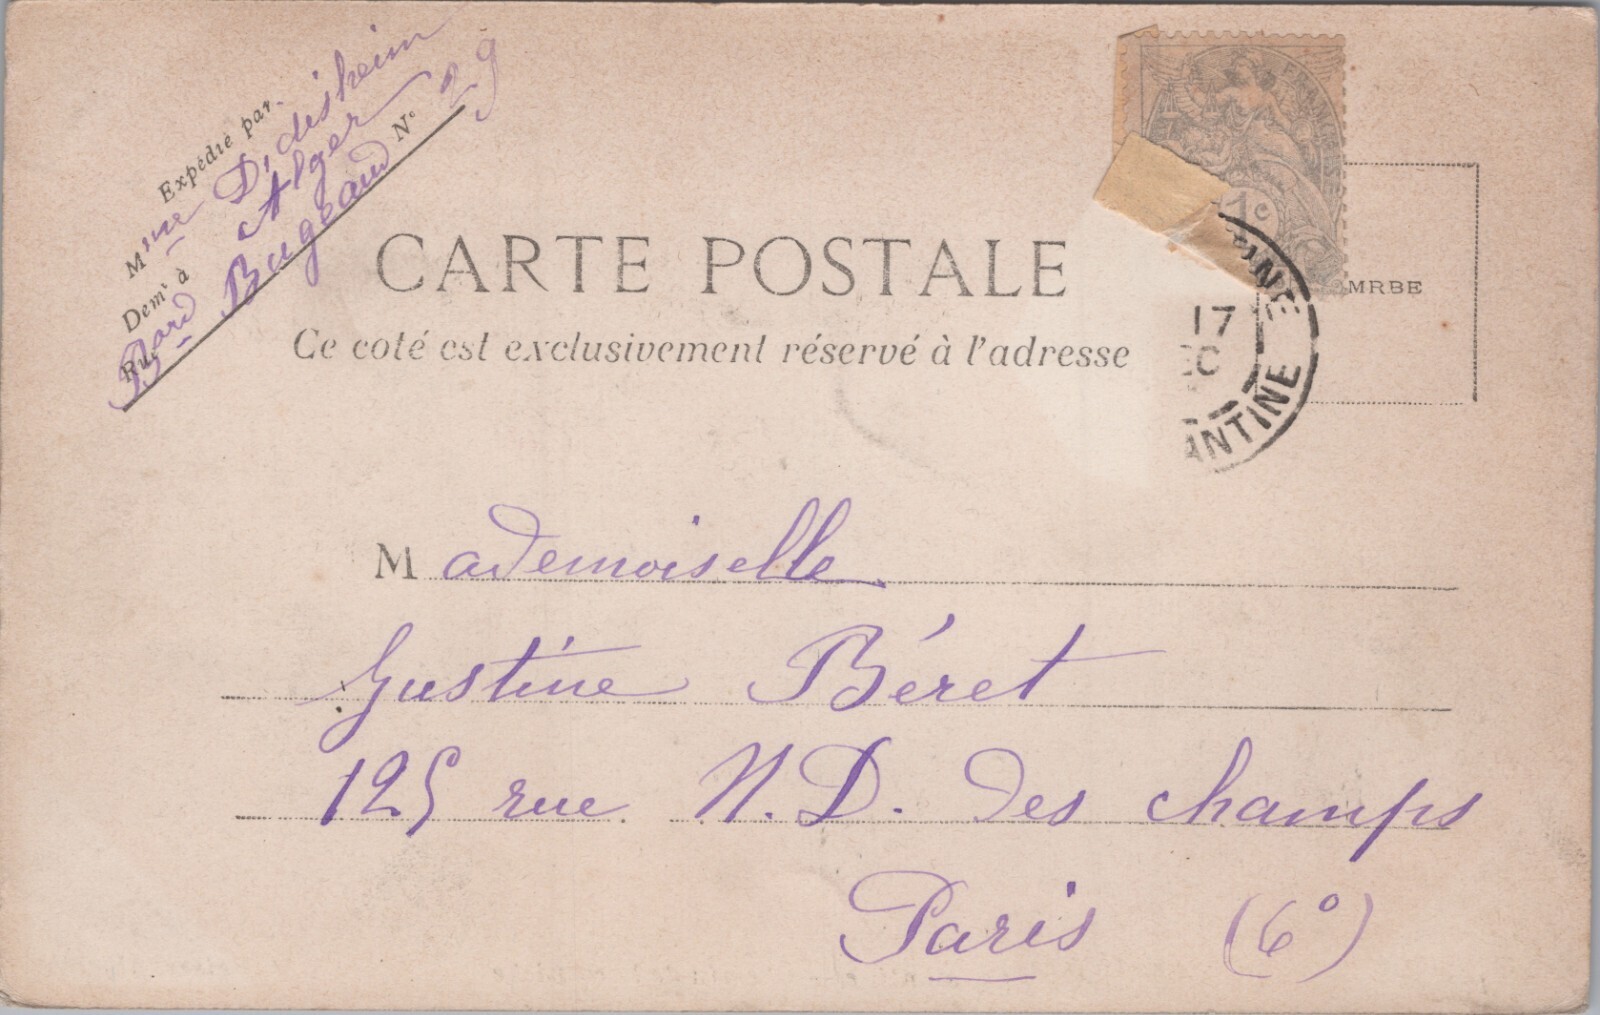 Expédié par
Mme Didisheim
Demt à Alger
Rue Bard Bugeaud N° 29
FRANÇAISE
1c
CARTE POSTALE
MRBE
17
EC
ANTINE
Ce coté est exclusivement réservé à l'adresse
Mademoiselle
Justine Béret
125 rue N. D. des champs
Paris (6°)